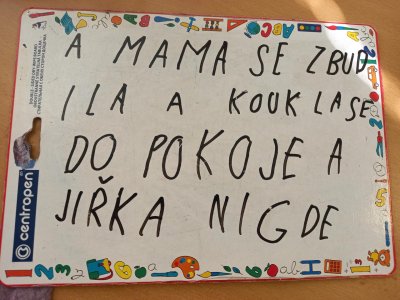 A MAMA SE ZBUD
ILA A KOUKLASE
DO POKOJE A
JIŘKA NIGDE
centropen